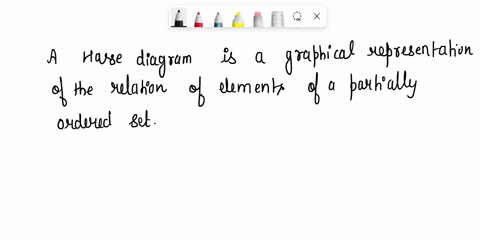 A Hasse diagram is a graphical representation
of the relation of elements of a partially
ordered set.